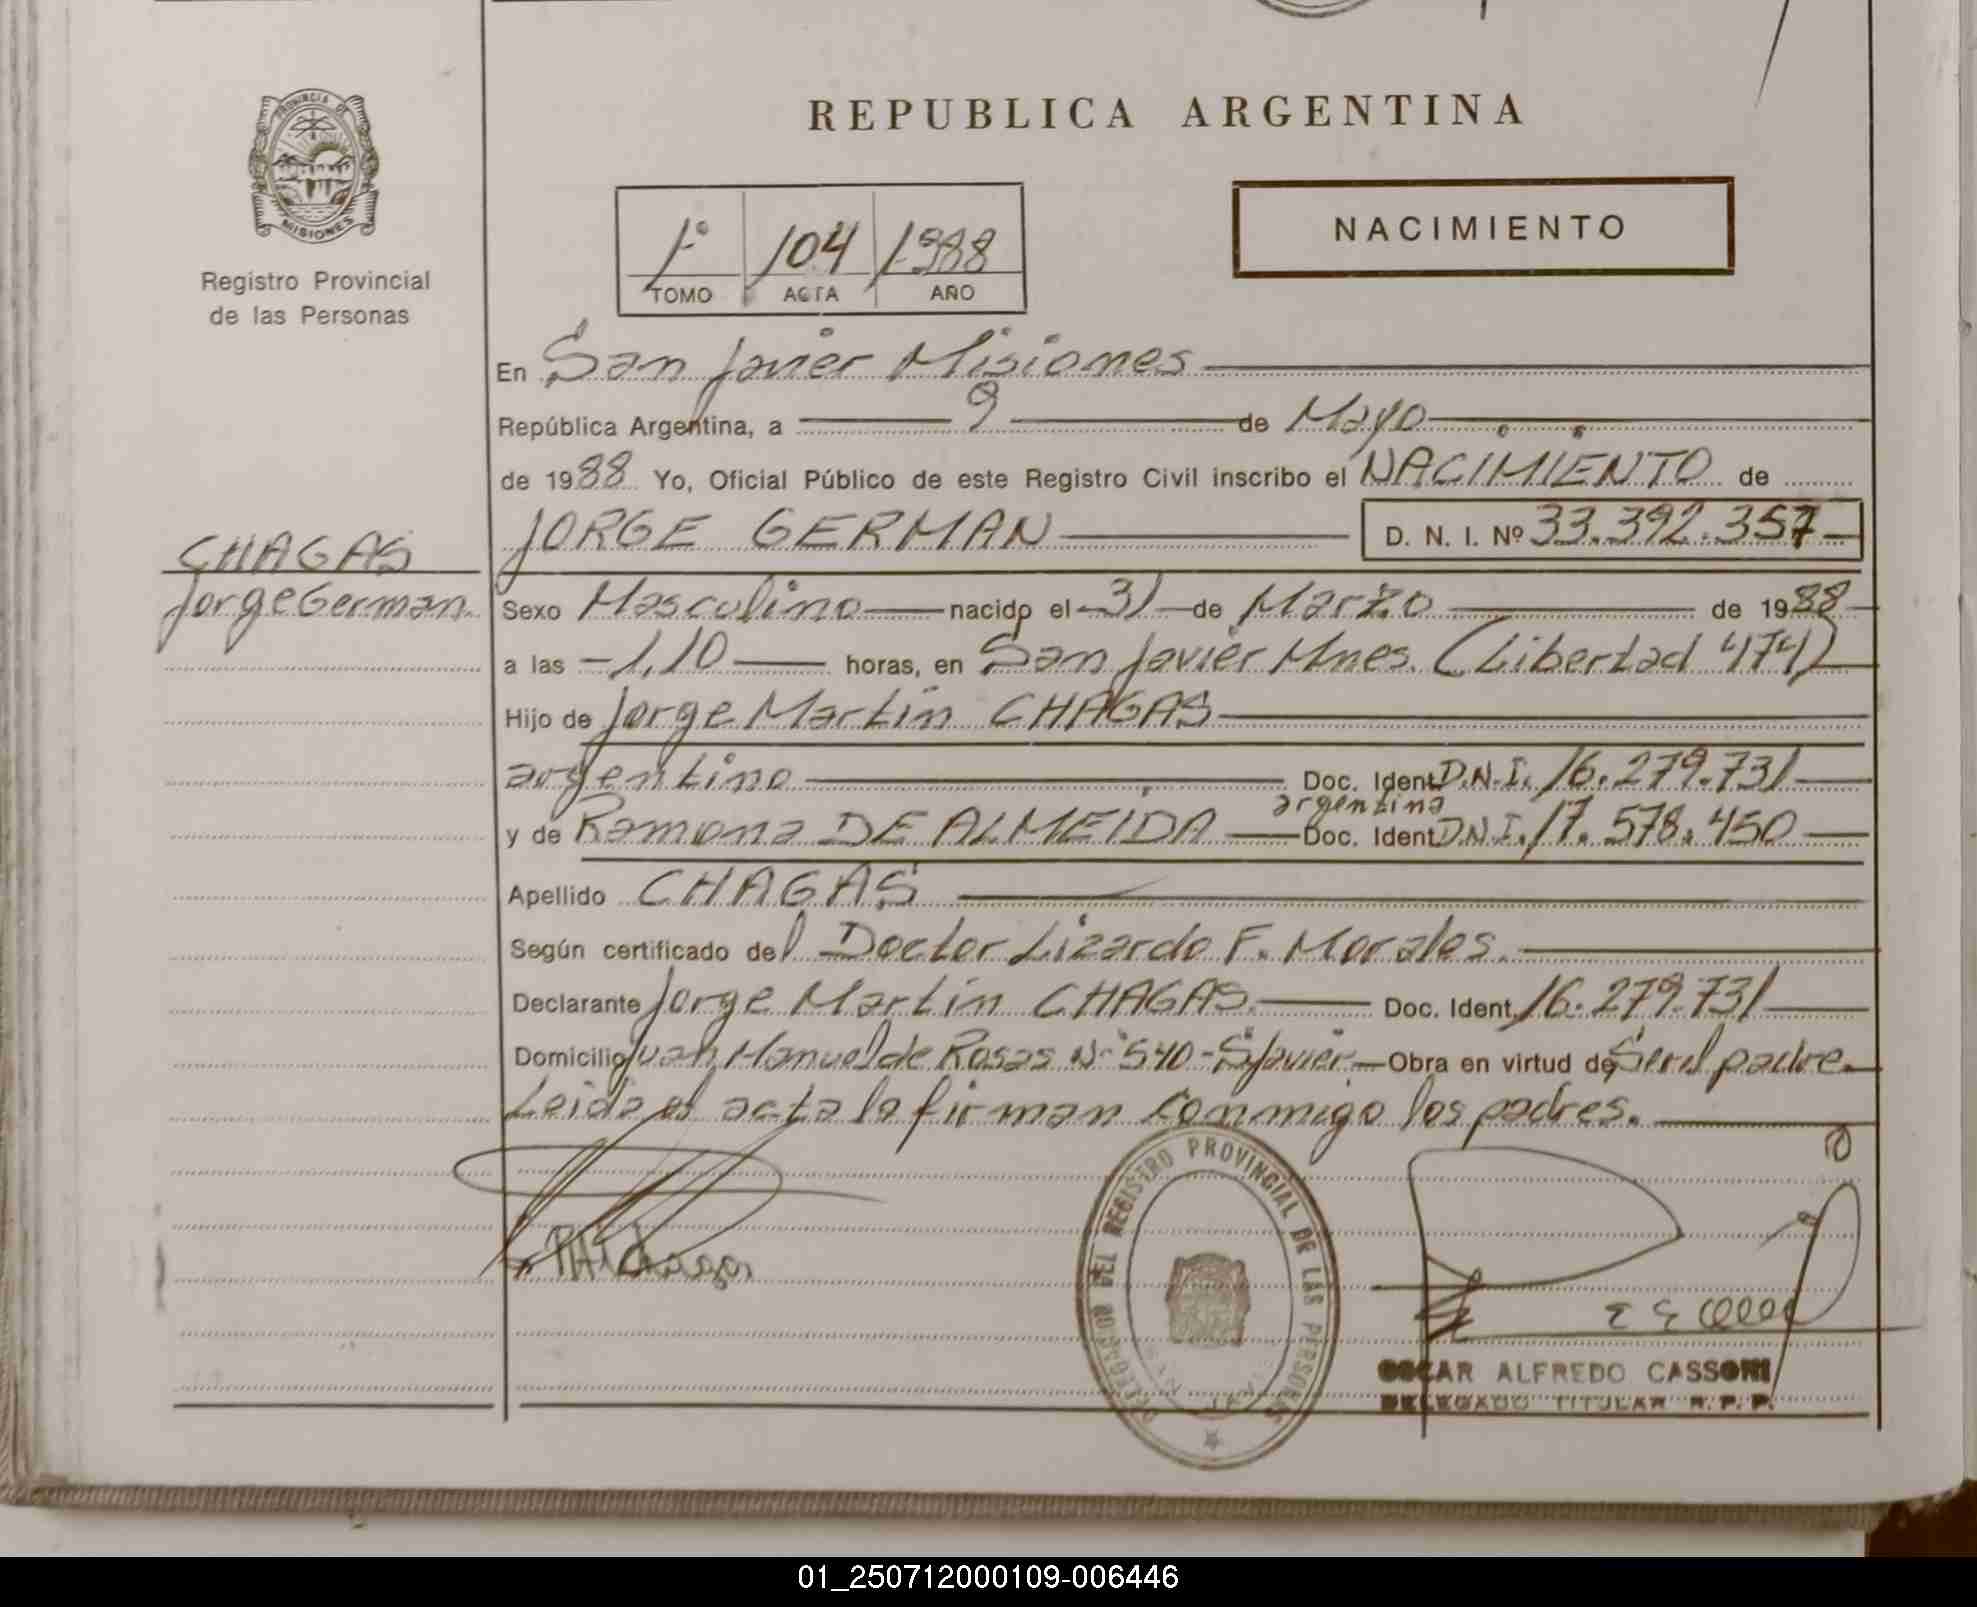 PROVINCIA DE
MISIONES
Registro Provincial
de las Personas
REPUBLICA ARGENTINA
1º 104 1988
TOMO ACTA AÑO
NACIMIENTO
En San Javier Misiones
República Argentina, a 9 de Mayo
de 1988 Yo, Oficial Público de este Registro Civil inscribo el NACIMIENTO de
JORGE GERMAN D. N. I. Nº 33.392.357
CHAGAS
Jorge German
Sexo Masculino nacido el 31 de Marzo de 1988
a las 1,10 horas, en San Javier Mnes. (Libertad 474)
Hijo de Jorge Martin CHAGAS
argentino Doc. Ident D.N.I. 16.279.731
argentina
y de Ramona DE ALMEIDA Doc. Ident D.N.I. 17.578.450
Apellido CHAGAS
Según certificado del Doctor Lizardo F. Morales.
Declarante Jorge Martin CHAGAS. Doc. Ident. 16.279.731
Domicilio Juan Manuel de Rosas Nº 540 - S. Javier Obra en virtud de Ser el padre
Leida el acta la firman conmigo los padres.
DELEGACION DEL REGISTRO PROVINCIAL DE LAS PERSONAS
OSCAR ALFREDO CASSONI
DELEGADO TITULAR R. P. P.
01_250712000109-006446